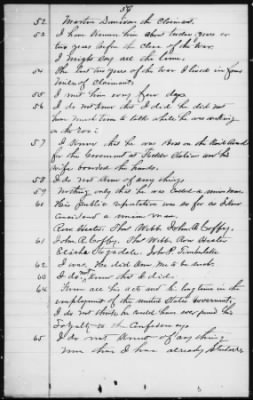 54
52 Martin Dunaway the Claimant.
53 I have known him about twelve years or
two years before the close of the war.
I might say all the time.
54 The last two years of the war I lived in four
miles of Claimant.
55 I met him every few days
56 I do not know that I did he did not
have much time to talk while he was working
on the
57 I know that he was Boss on the Rail Road
for the Government at Station and his
wife boarded the hands.
58 I do not know of any thing
59 Nothing only that he was called a union man
61 His public reputation was so far as I know
Considered a union man.
Ron Hester. Thos Webb. John A Coffey.
61 John A Coffey. Thos Webb. Ron Hester
Elisha John P.
62 I was. He did know me to be such.
63 I do not know that I did.
64 From all his acts and he being time in the
employment of the United States Government,
I do not think he could have ever proved his
Loyalty to the Confederacy
65 I do not know of any thing
more than I have already stated.